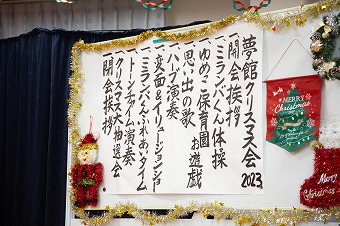 夢館クリスマス会 2023.
一開会挨拶
一ミランバくん体操
一ゆめっこ保育園お遊戯
一思い出の歌
一ハープ演奏
一変面&イリュージョンショー
一ミランバくんふれあいタイム
一トーンチャイム演奏
一クリスマス大抽選会
一閉会挨拶
MERRY Christmas
Merry Christmas